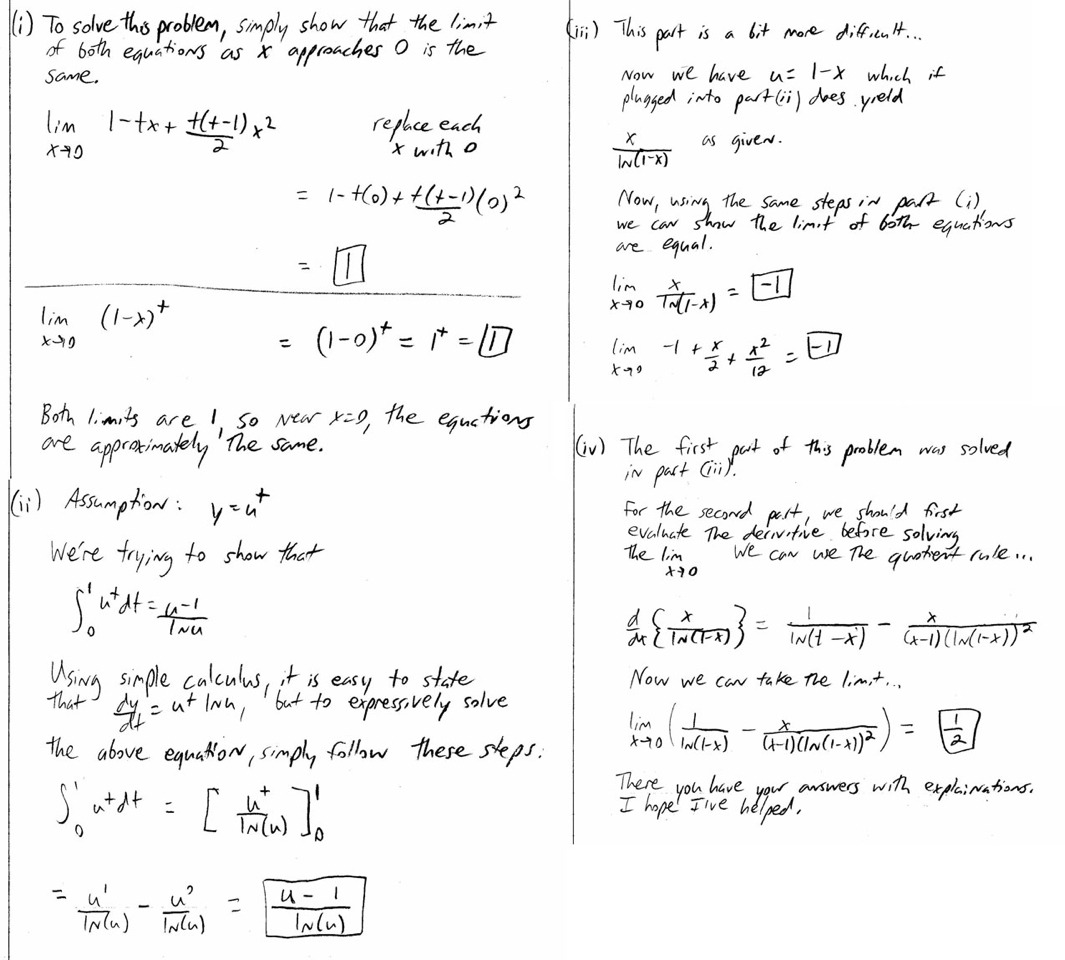 (i) To solve this problem, simply show that the limit
of both equations as x approaches 0 is the
same.
lim x→0 1-tx + t(t-1)/2 x² replace each
x with 0
= 1-t(0) + t(t-1)/2 (0)²
= 1
lim x→0 (1-x)^t = (1-0)^t = 1^t = 1
Both limits are 1, so near x=0, the equations
are approximately the same.
(ii) Assumption: y=u^t
We're trying to show that
∫₀¹ u^t dt = u-1/lnu
Using simple calculus, it is easy to state
that dy/dt = u^t lnu, but to expressively solve
the above equation, simply follow these steps:
∫₀¹ u^t dt = [u^t/ln(u)]₀¹
= u¹/ln(u) - u⁰/ln(u) = u-1/ln(u)
(iii) This part is a bit more difficult...
Now we have u= 1-x which if
plugged into part (ii) does yield
x/ln(1-x) as given.
Now, using the same steps in part (i),
we can show the limit of both equations
are equal.
lim x→0 x/ln(1-x) = -1
lim x→0 -1 + x/2 + x²/12 = -1
(iv) The first part of this problem was solved
in part (iii).
For the second part, we should first
evaluate the derivitive before solving
the lim x→0 We can use the quotient rule...
d/dx {x/ln(1-x)} = 1/ln(1-x) - x/(x-1)(ln(1-x))²
Now we can take the limit...
lim x→0 (1/ln(1-x) - x/(x-1)(ln(1-x))²) = 1/2
There you have your answers with explainations.
I hope I've helped.